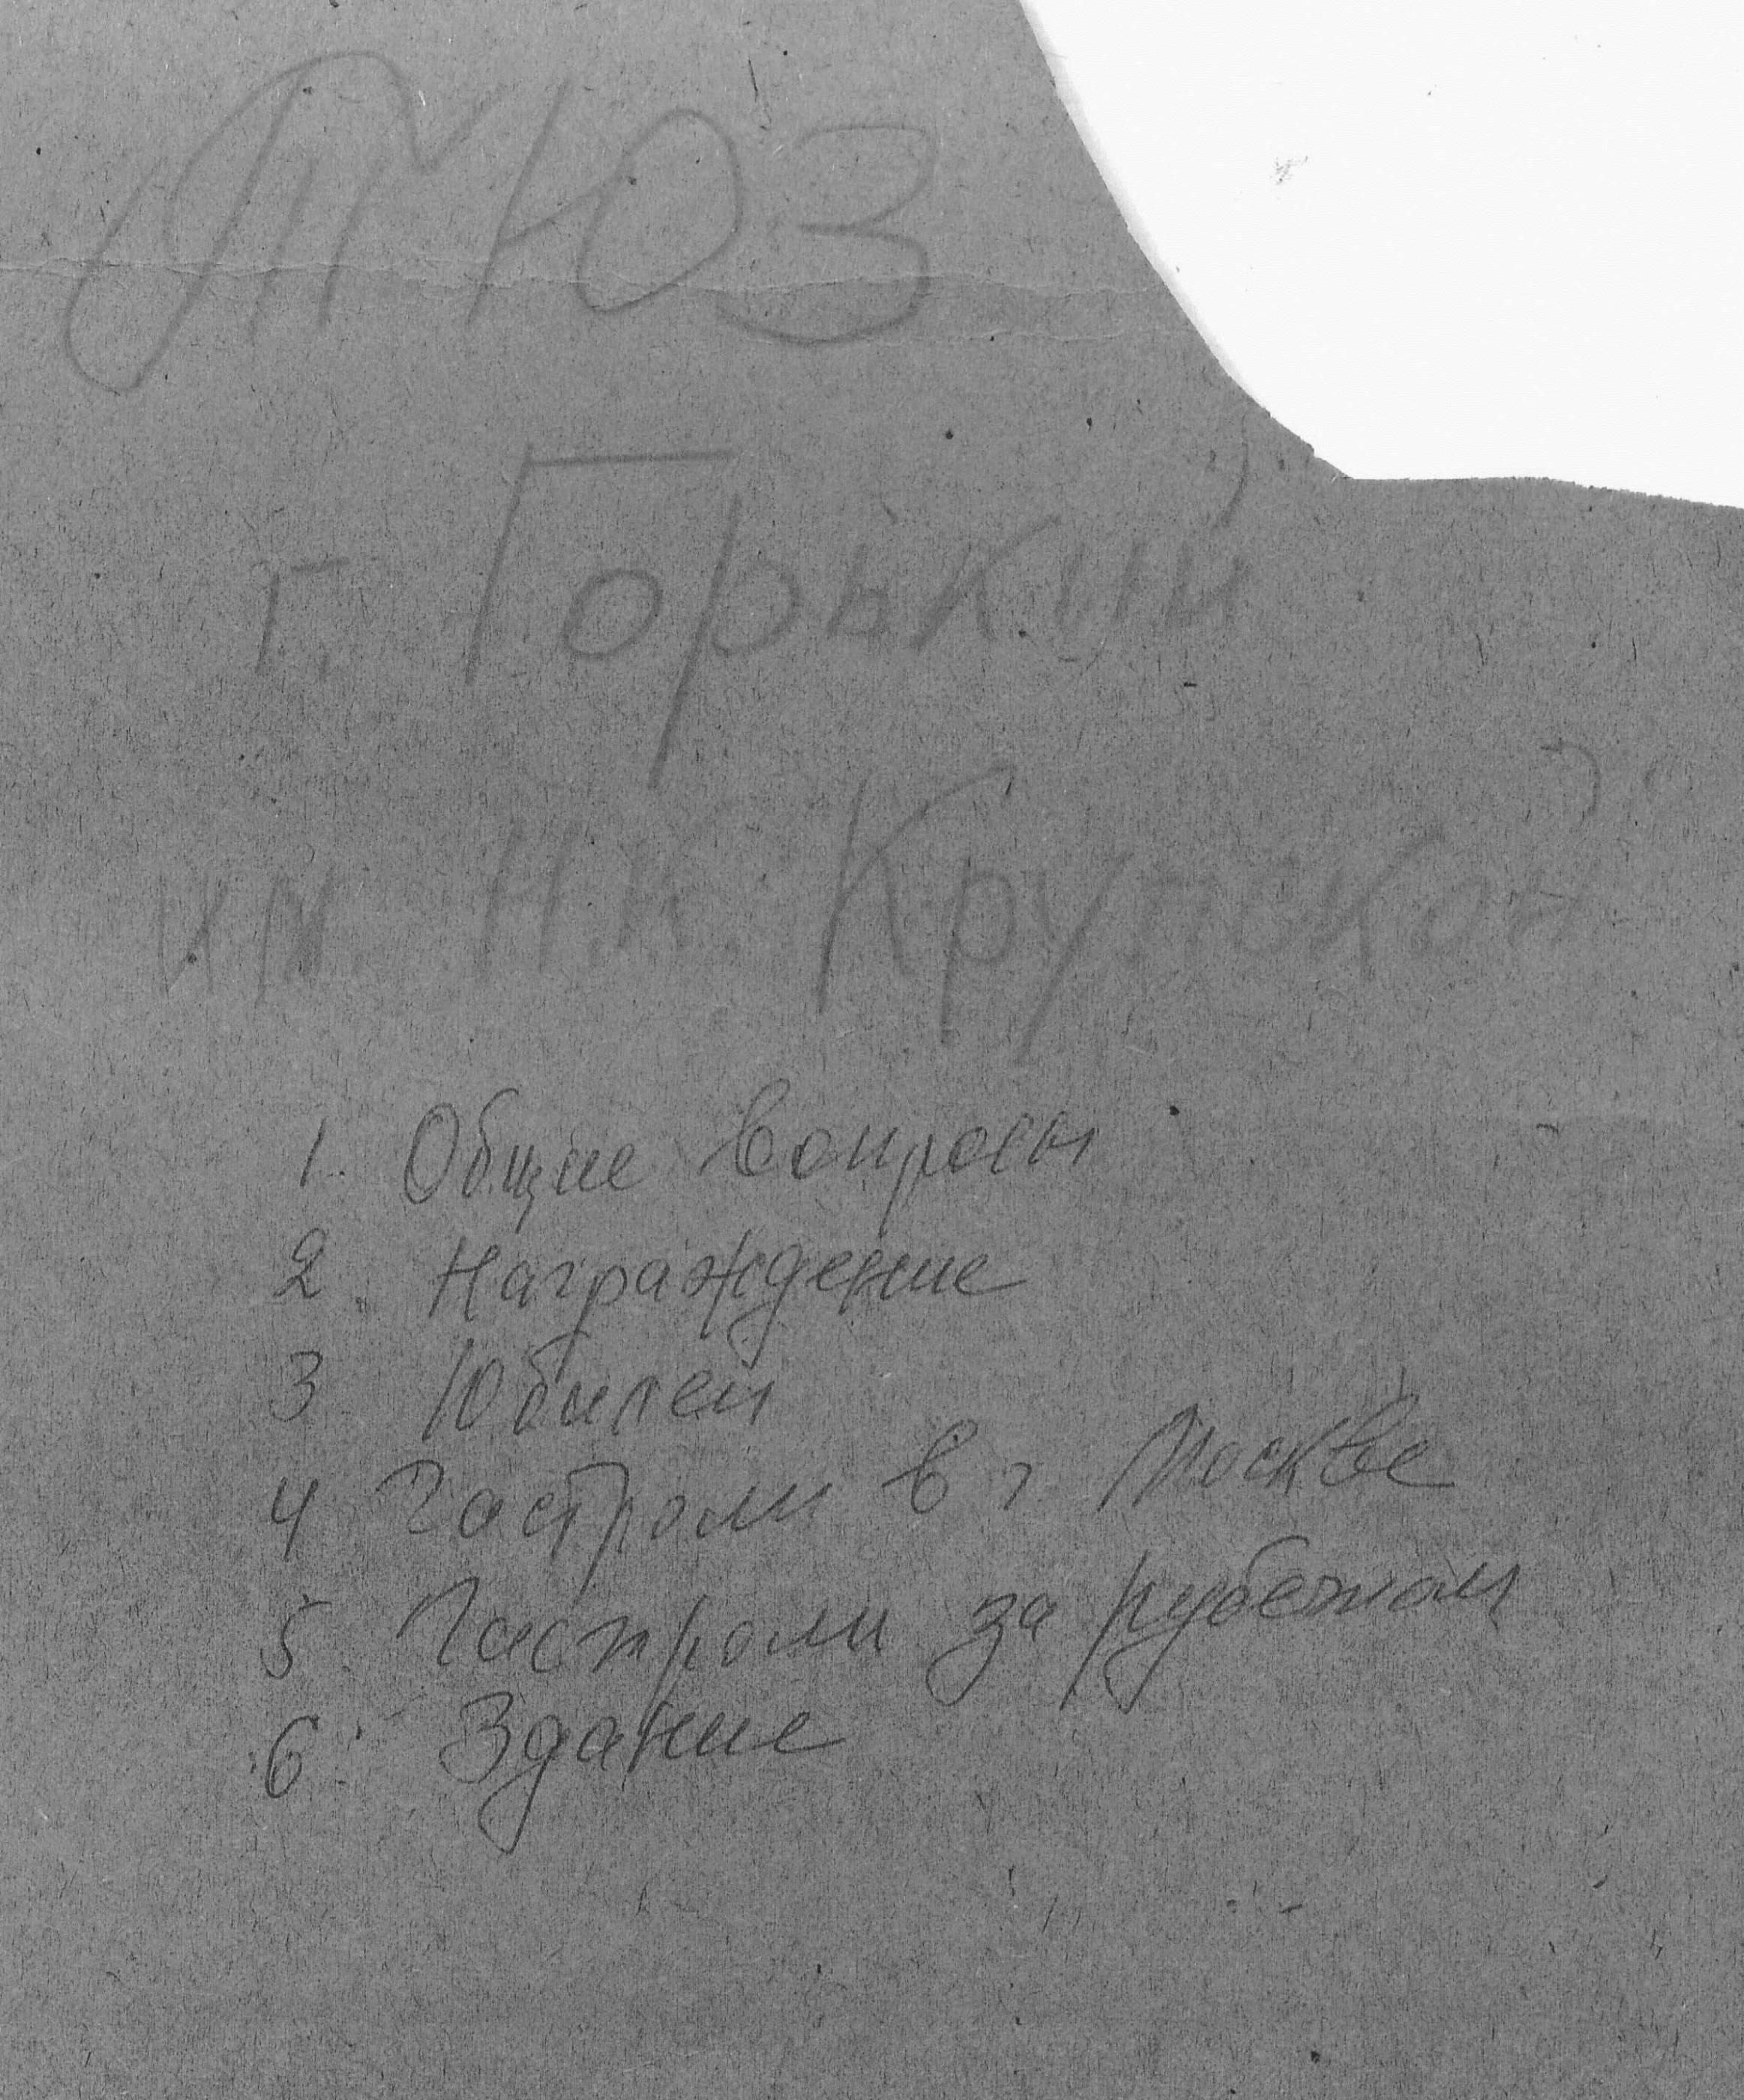 ТЮЗ
г. Горький
им. Н.К. Крупской
1. Общие вопросы
2. Награждение
3 Юбилеи
4 Гастроли в г. Москве
5. Гастроли за рубежом
6. Здание